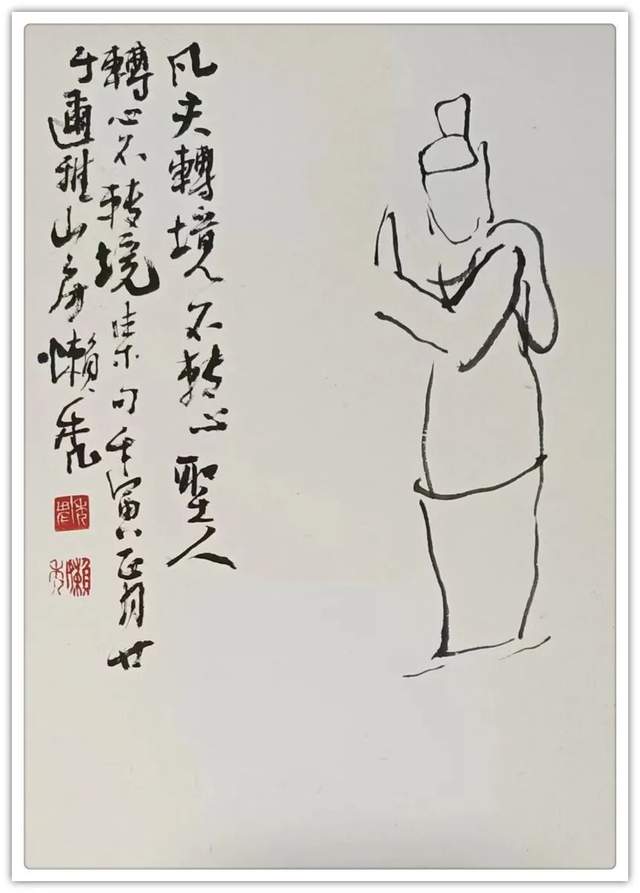 凡夫轉境不轉心聖人
轉心不轉境集句壬寅正月廿
于邇雅山房懶禿